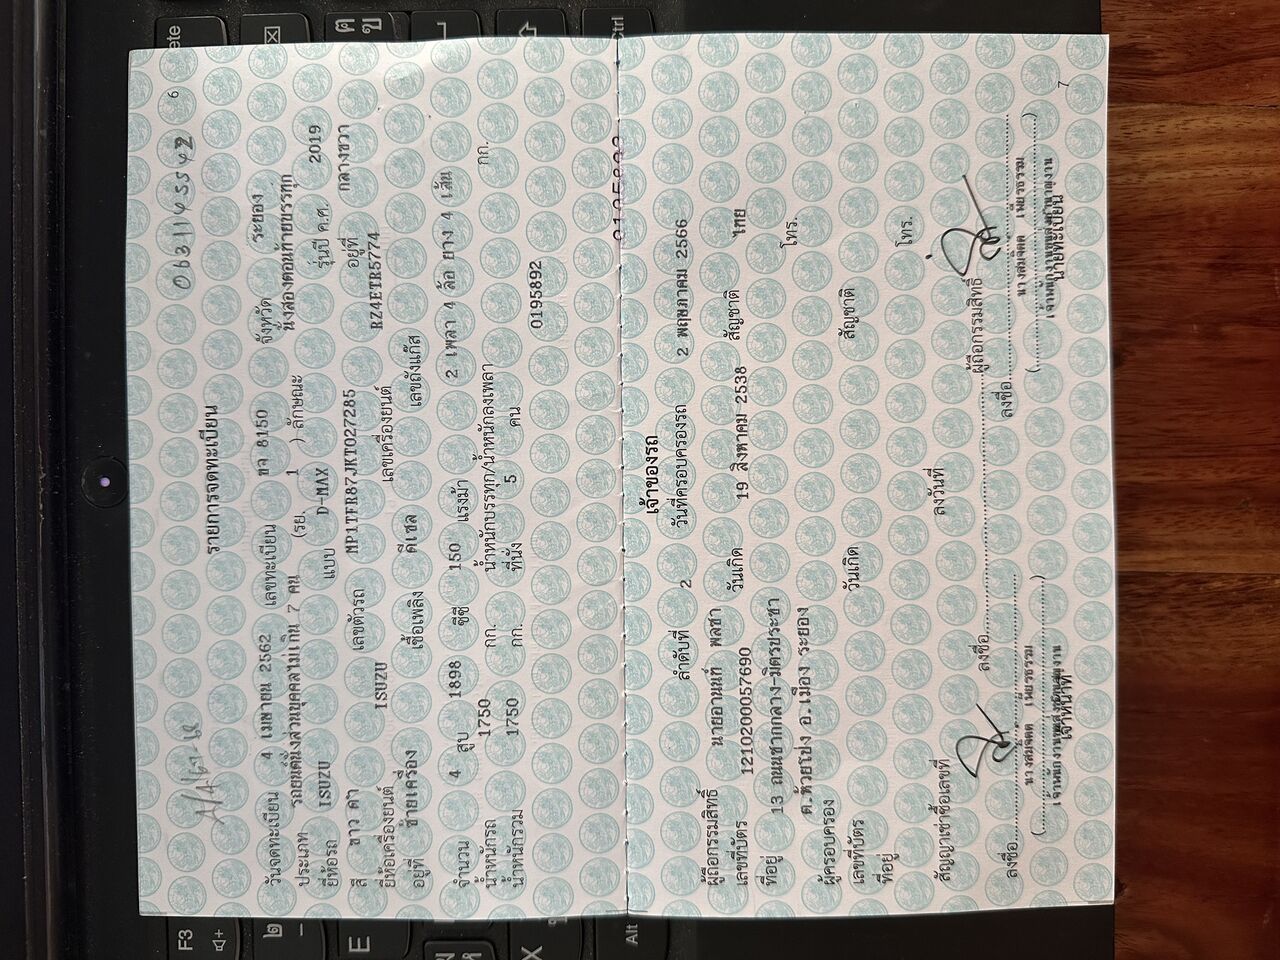 0631145542 6
รายการจดทะเบียน
วันจดทะเบียน 4 เมษายน 2562 เลขทะเบียน ขจ 8150 จังหวัด ระยอง
ประเภท รถยนต์นั่งส่วนบุคคลไม่เกิน 7 คน (รย. 1 ) ลักษณะ นั่งสองตอนท้ายบรรทุก
ยี่ห้อรถ ISUZU แบบ D-MAX รุ่นปี ค.ศ. 2019
สี ขาว ดำ เลขตัวรถ MP1TFR87JKT027285 อยู่ที่ กลางขวา
ยี่ห้อเครื่องยนต์ ISUZU เลขเครื่องยนต์ RZ4ETR5774
อยู่ที่ ซ้ายเครื่อง เชื้อเพลิง ดีเซล เลขถังแก๊ส
จำนวน 4 สูบ 1898 ซีซี 150 แรงม้า 2 เพลา 4 ล้อ ยาง 4 เส้น
น้ำหนักรถ 1750 กก. น้ำหนักบรรทุก/น้ำหนักลงเพลา กก.
น้ำหนักรวม 1750 กก. ที่นั่ง 5 คน
0195892
เจ้าของรถ
ลำดับที่ 2 วันที่ครอบครองรถ 2 พฤษภาคม 2566
ผู้ถือกรรมสิทธิ์ นายอานนท์ พลชา
เลขที่บัตร 1210200057690 วันเกิด 19 สิงหาคม 2538 สัญชาติ ไทย
ที่อยู่ 13 ถนนชากกลาง-มิตรประชา โทร.
ต.ห้วยโป่ง อ.เมือง ระยอง
ผู้ครอบครอง
เลขที่บัตร วันเกิด สัญชาติ
ที่อยู่ โทร.
สัญญาเช่าซื้อเลขที่ ลงวันที่
ลงชื่อ ผู้ถือกรรมสิทธิ์
ลงชื่อ ลงชื่อ
นางสมจิตต เพียรธรรม นางสมจิตต เพียรธรรม
( ) ( )
เจ้าหน้าที่ นายทะเบียน
7